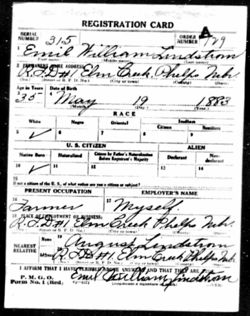 REGISTRATION CARD
SERIAL NUMBER 315 ORDER NUMBER A129
Emil William Lindstrom
PERMANENT HOME ADDRESS:
R.F.D.#1 Elm Creek Phelps Nebr.
Age in Years Date of Birth
35 May 19 1883
RACE
White Negro Oriental Indian
Citizen Noncitizen
U. S. CITIZEN ALIEN
Native Born Naturalized Citizen by Father's Naturalization Before Registrant's Majority Declarant Non-declarant
If not a citizen of the U. S., of what nation are you a citizen or subject?
PRESENT OCCUPATION EMPLOYER'S NAME
Farmer Myself
PLACE OF EMPLOYMENT OR BUSINESS:
R.F.D.#1 Elm Creek Phelps Nebr.
NEAREST RELATIVE
Name August Lindstrom
Address R.F.D.#1 Elm Creek Phelps Nebr.
I AFFIRM THAT I HAVE VERIFIED ABOVE ANSWERS AND THAT THEY ARE TRUE
P. M. G. O.
Form No. 1 (Red) Emil William Lindstrom